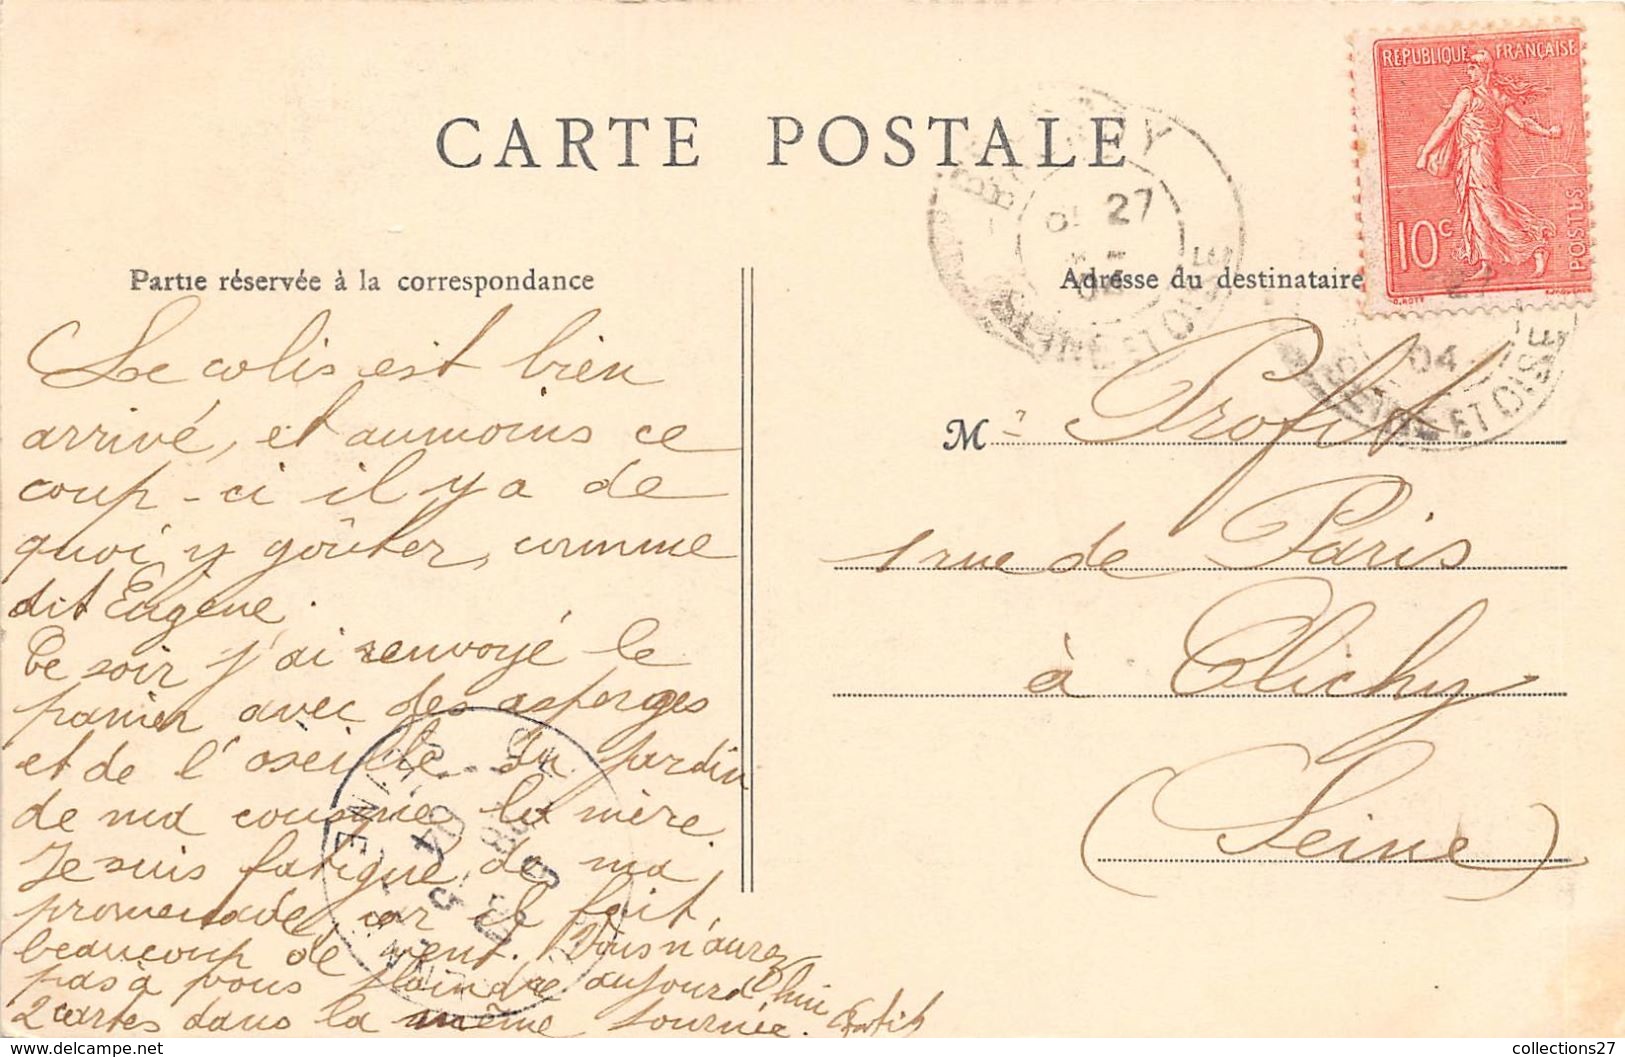 CARTE POSTALE
REPUBLIQUE FRANÇAISE
10c
POSTES
27
04
SEINE ET OISE
Partie réservée à la correspondance
Adresse du destinataire
Le colis est bien
arrivé, et au moins ce
coup-ci il y a de
quoi y goûter, comme
dit Eugène.
Ce soir j'ai renvoyé le
panier avec des asperges
et de l'oseille du jardin
de ma cousine la mère
Je suis fatigué de ma
promenade car il fait
beaucoup de vent. Vous n'aurez
pas à vous plaindre aujourd'hui
2 cartes dans la même tournée.
M r Profit
1 rue de Paris
à Clichy
(Seine)
SEINE
collections27